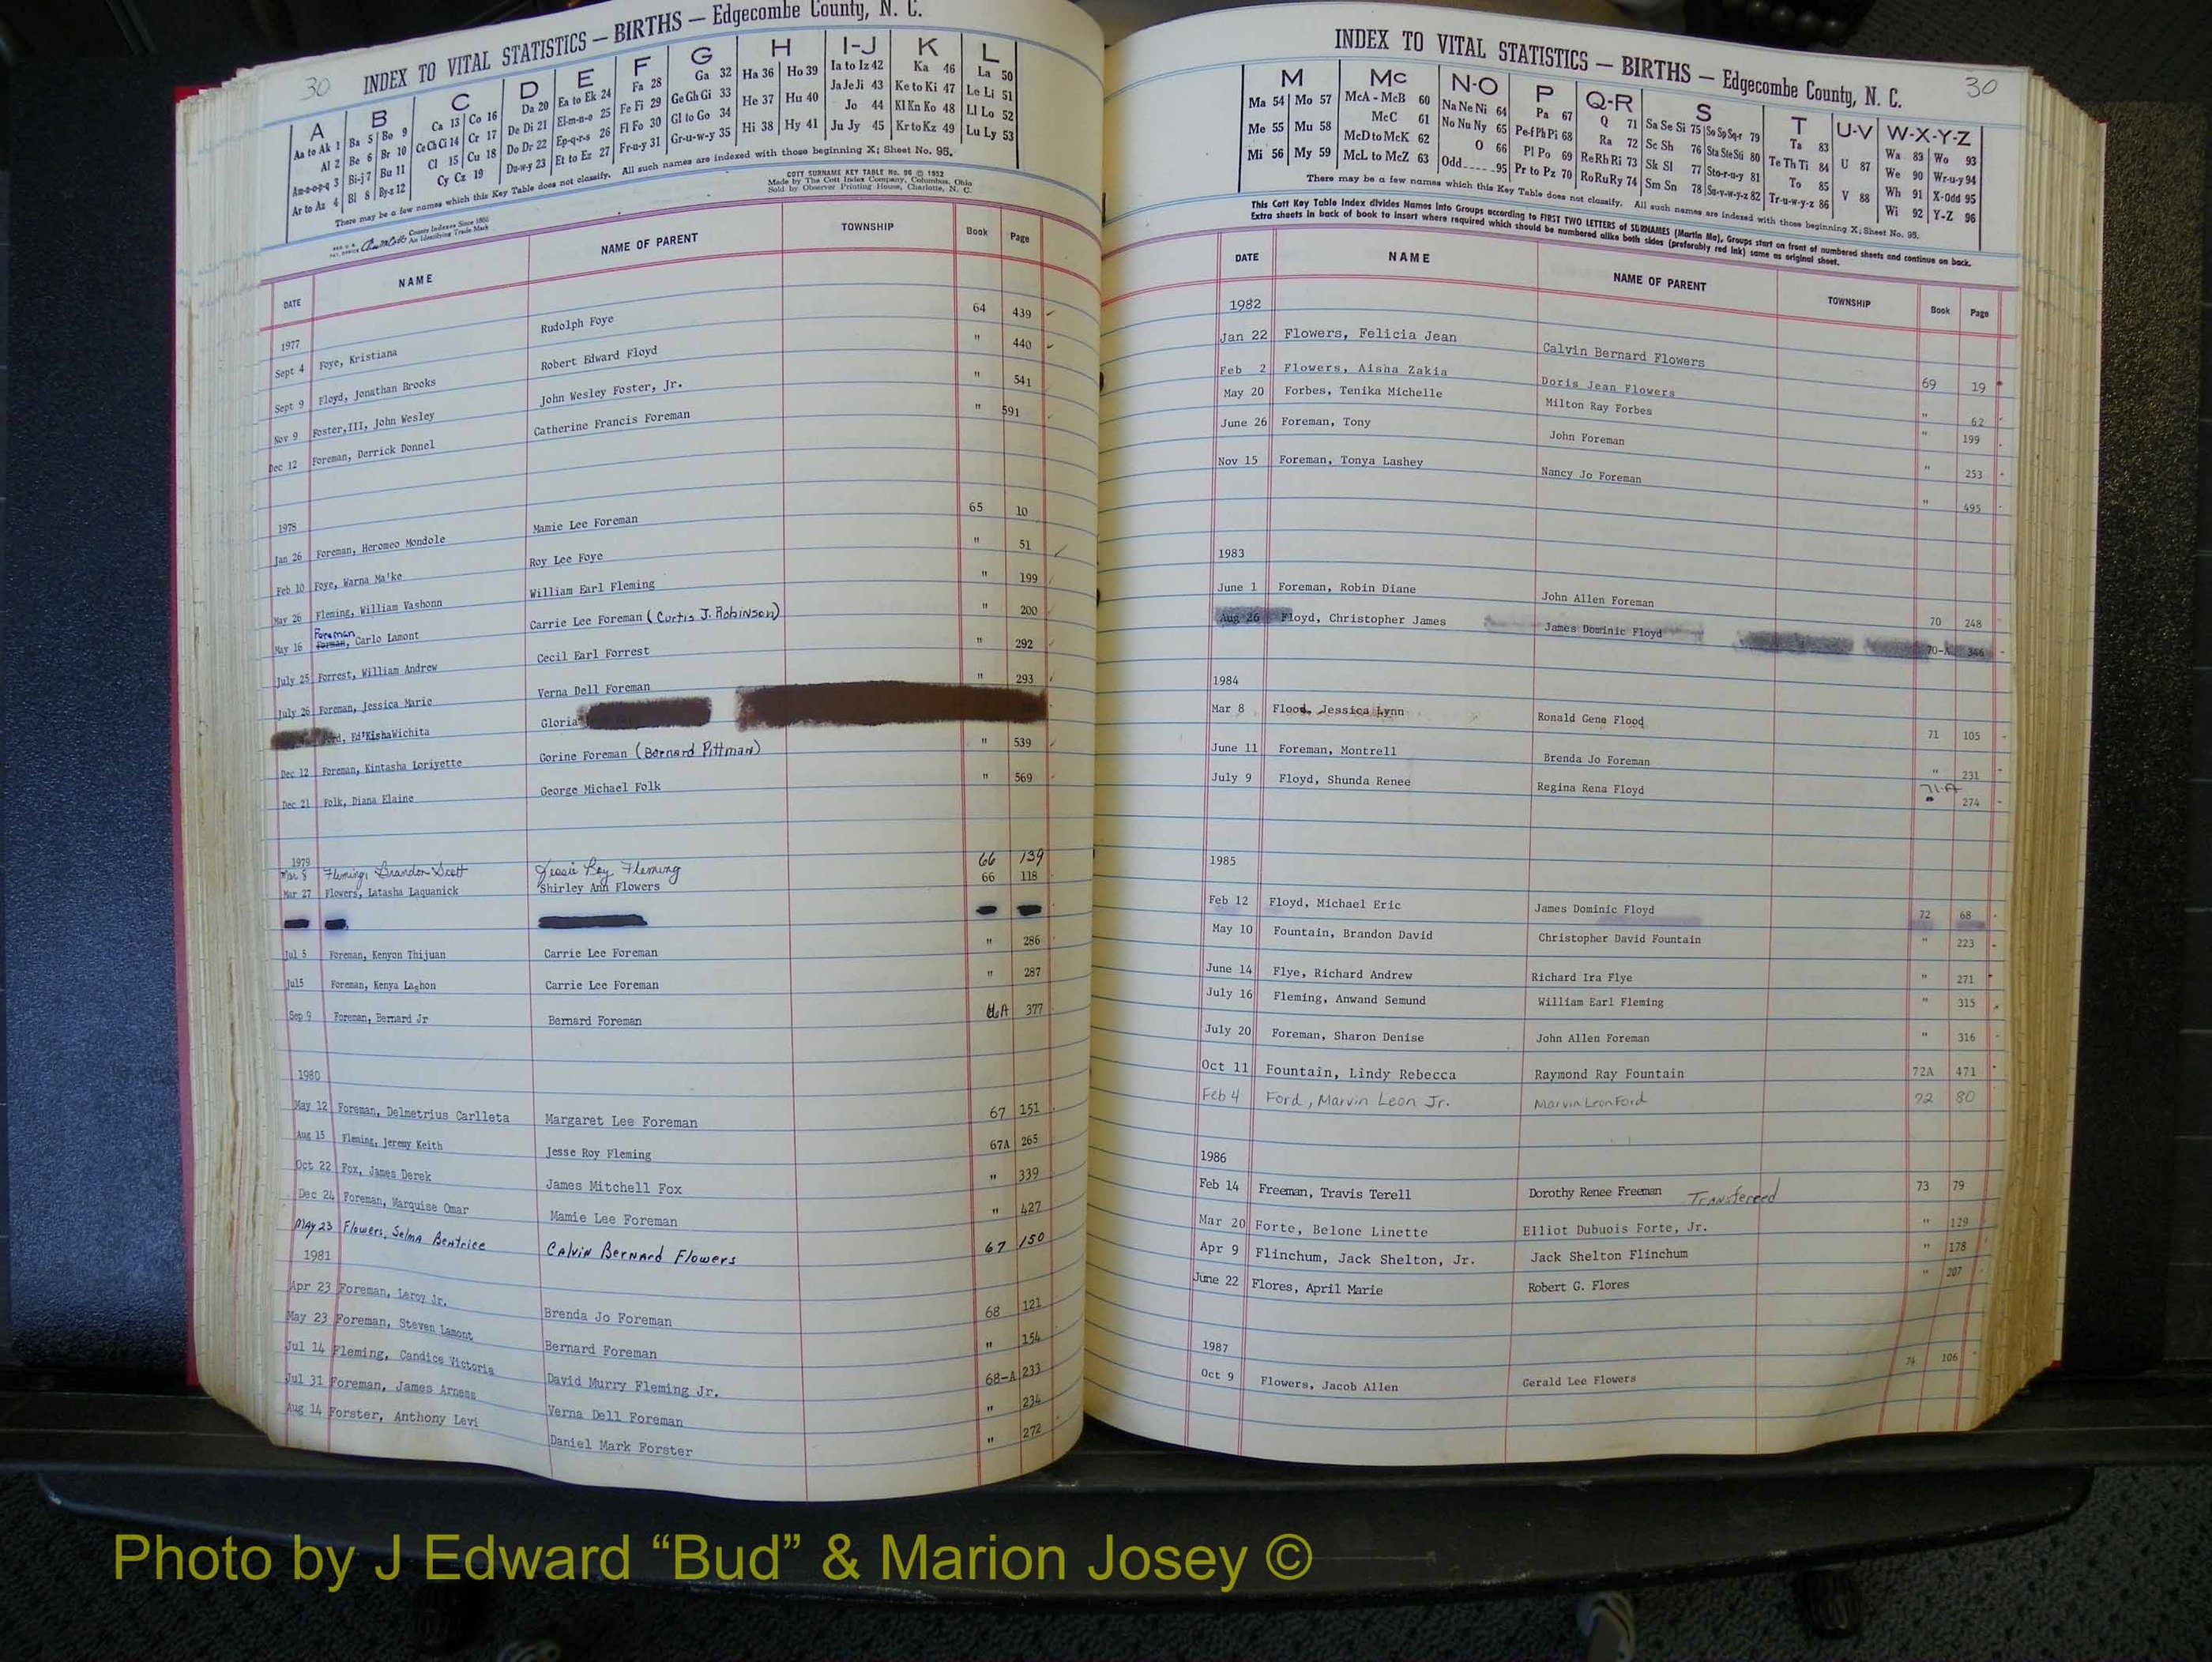 30
INDEX TO VITAL STATISTICS — BIRTHS — Edgecombe County, N. C.
A B C D E F G H I-J K L
Aa to Ak 1 Ba 5 Bo 9 Ca 13 Co 16 Da 20 Ea to Ek 24 Fa 28 Ga 32 Ha 36 Ho 39 Ia to Iz 42 Ka 46 La 50
Al 2 Be 6 Br 10 Ce Ch Ci 14 Cr 17 De Di 21 El-m-n-o 25 Fe Fi 29 Ge Gh Gi 33 He 37 Hu 40 Ja Je Ji 43 Ke to Ki 47 Le Li 51
Am-n-o-p-q 3 Bi-j 7 Bu 11 Cl 15 Cu 18 Do Dr 22 Ep-q-r-s 26 Fl Fo 30 Gl to Go 34 Hi 38 Hy 41 Jo 44 Kl Kn Ko 48 Ll Lo 52
Ar to Az 4 Bl 8 By-z 12 Cy Cz 19 Du-w-y 23 Et to Ez 27 Fr-u-y 31 Gr-u-w-y 35 Ju Jy 45 Kr to Kz 49 Lu Ly 53
There may be a few names which this Key Table does not classify. All such names are indexed with those beginning X; Sheet No. 95.
COTT SURNAME KEY TABLE No. 96 © 1952
Made by The Cott Index Company, Columbus, Ohio
Sold by Observer Printing House, Charlotte, N. C.
County Indexes Since 1888
An Identifying Trade Mark
DATE NAME NAME OF PARENT TOWNSHIP Book Page
1977
Sept 4 Foye, Kristiana Rudolph Foye 64 439
Sept 9 Floyd, Jonathan Brooks Robert Edward Floyd " 440
Nov 9 Foster,III, John Wesley John Wesley Foster, Jr. " 541
Dec 12 Foreman, Derrick Donnel Catherine Francis Foreman " 591
1978
Jan 26 Foreman, Heromeo Mondole Mamie Lee Foreman 65 10
Feb 10 Foye, Warna Ma'ke Roy Lee Foye " 51
May 26 Fleming, William Vashonn William Earl Fleming " 199
Foreman
May 16 Forman, Carlo Lamont Carrie Lee Foreman (Curtis J. Robinson) " 200
July 25 Forrest, William Andrew Cecil Earl Forrest " 292
July 26 Foreman, Jessica Marie Verna Dell Foreman " 293
Ed'KishaWichita Gloria
Dec 12 Foreman, Kintasha Loriyette Gorine Foreman (Bernard Pittman) " 539
Dec 21 Folk, Diana Elaine George Michael Folk " 569
1979
Mar 8 Fleming, Brandon Scott Jessie Roy Fleming 66 139
Mar 27 Flowers, Latasha Laquanick Shirley Ann Flowers 66 118
Jul 5 Foreman, Kenyon Thijuan Carrie Lee Foreman " 286
Jul5 Foreman, Kenya Lashon Carrie Lee Foreman " 287
Sep 9 Foreman, Bernard Jr Bernard Foreman 377
1980
May 12 Foreman, Delmetrius Carlleta Margaret Lee Foreman 67 151
Aug 15 Fleming, Jeremy Keith Jesse Roy Fleming 67A 265
Oct 22 Fox, James Derek James Mitchell Fox " 339
Dec 24 Foreman, Marquise Omar Mamie Lee Foreman " 427
MAY 23 Flowers, Selma Beatrice Calvin Bernard Flowers 67 150
1981
Apr 23 Foreman, Leroy Jr. Brenda Jo Foreman 68 121
May 23 Foreman, Steven Lamont Bernard Foreman " 154
Jul 14 Fleming, Candice Victoria David Murry Fleming Jr. 68-A 233
Jul 31 Foreman, James Arness Verna Dell Foreman " 234
Aug 14 Forster, Anthony Levi Daniel Mark Forster " 272
INDEX TO VITAL STATISTICS — BIRTHS — Edgecombe County, N. C.
30
M Mc N-O P Q-R S T U-V W-X-Y-Z
Ma 54 Mo 57 McA - McB 60 Na Ne Ni 64 Pa 67 Q 71 Sa Se Si 75 So Sp Sq-r 79 Ta 83 U 87 Wa 89 Wo 93
Me 55 Mu 58 McC 61 No Nu Ny 65 Pe-f Ph Pi 68 Ra 72 Sc Sh 76 Sta Ste Sti 80 Te Th Ti 84 V 88 We 90 Wr-u-y 94
Mi 56 My 59 McD to McK 62 O 66 Pl Po 69 Re Rh Ri 73 Sk Sl 77 Sto-r-u-y 81 To 85 Wh 91 X-Odd 95
McL to McZ 63 Odd 95 Pr to Pz 70 Ro Ru Ry 74 Sm Sn 78 Su-v-w-y-z 82 Tr-u-w-y-z 86 Wi 92 Y-Z 96
There may be a few names which this Key Table does not classify. All such names are indexed with those beginning X; Sheet No. 95.
This Cott Key Table Index divides Names into Groups according to FIRST TWO LETTERS of SURNAMES (Martin Ma), Groups start on front of numbered sheets and continue on back.
Extra sheets in back of book to insert where required which should be numbered alike both sides (preferably red ink) same as original sheet.
DATE NAME NAME OF PARENT TOWNSHIP Book Page
1982
Jan 22 Flowers, Felicia Jean Calvin Bernard Flowers 69 19
Feb 2 Flowers, Aisha Zakia Doris Jean Flowers " 62
May 20 Forbes, Tenika Michelle Milton Ray Forbes " 199
June 26 Foreman, Tony John Foreman " 253
Nov 15 Foreman, Tonya Lashey Nancy Jo Foreman " 495
1983
June 1 Foreman, Robin Diane John Allen Foreman 70 248
Aug 26 Floyd, Christopher James James Dominic Floyd 70-A 346
1984
Mar 8 Flood, Jessica Lynn Ronald Gene Flood 71 105
June 11 Foreman, Montrell Brenda Jo Foreman " 231
July 9 Floyd, Shunda Renee Regina Rena Floyd 71-A 274
1985
Feb 12 Floyd, Michael Eric James Dominic Floyd 72 68
May 10 Fountain, Brandon David Christopher David Fountain " 223
June 14 Flye, Richard Andrew Richard Ira Flye " 271
July 16 Fleming, Anwand Semund William Earl Fleming " 315
July 20 Foreman, Sharon Denise John Allen Foreman " 316
Oct 11 Fountain, Lindy Rebecca Raymond Ray Fountain 72A 471
Feb 4 Ford, Marvin Leon Jr. Marvin Leon Ford 72 80
1986
Feb 14 Freeman, Travis Terell Dorothy Renee Freeman Transfereed 73 79
Mar 20 Forte, Belone Linette Elliot Dubuois Forte, Jr. " 129
Apr 9 Flinchum, Jack Shelton, Jr. Jack Shelton Flinchum " 178
June 22 Flores, April Marie Robert G. Flores " 207
1987
Oct 9 Flowers, Jacob Allen Gerald Lee Flowers 74 106
Photo by J Edward “Bud” & Marion Josey ©